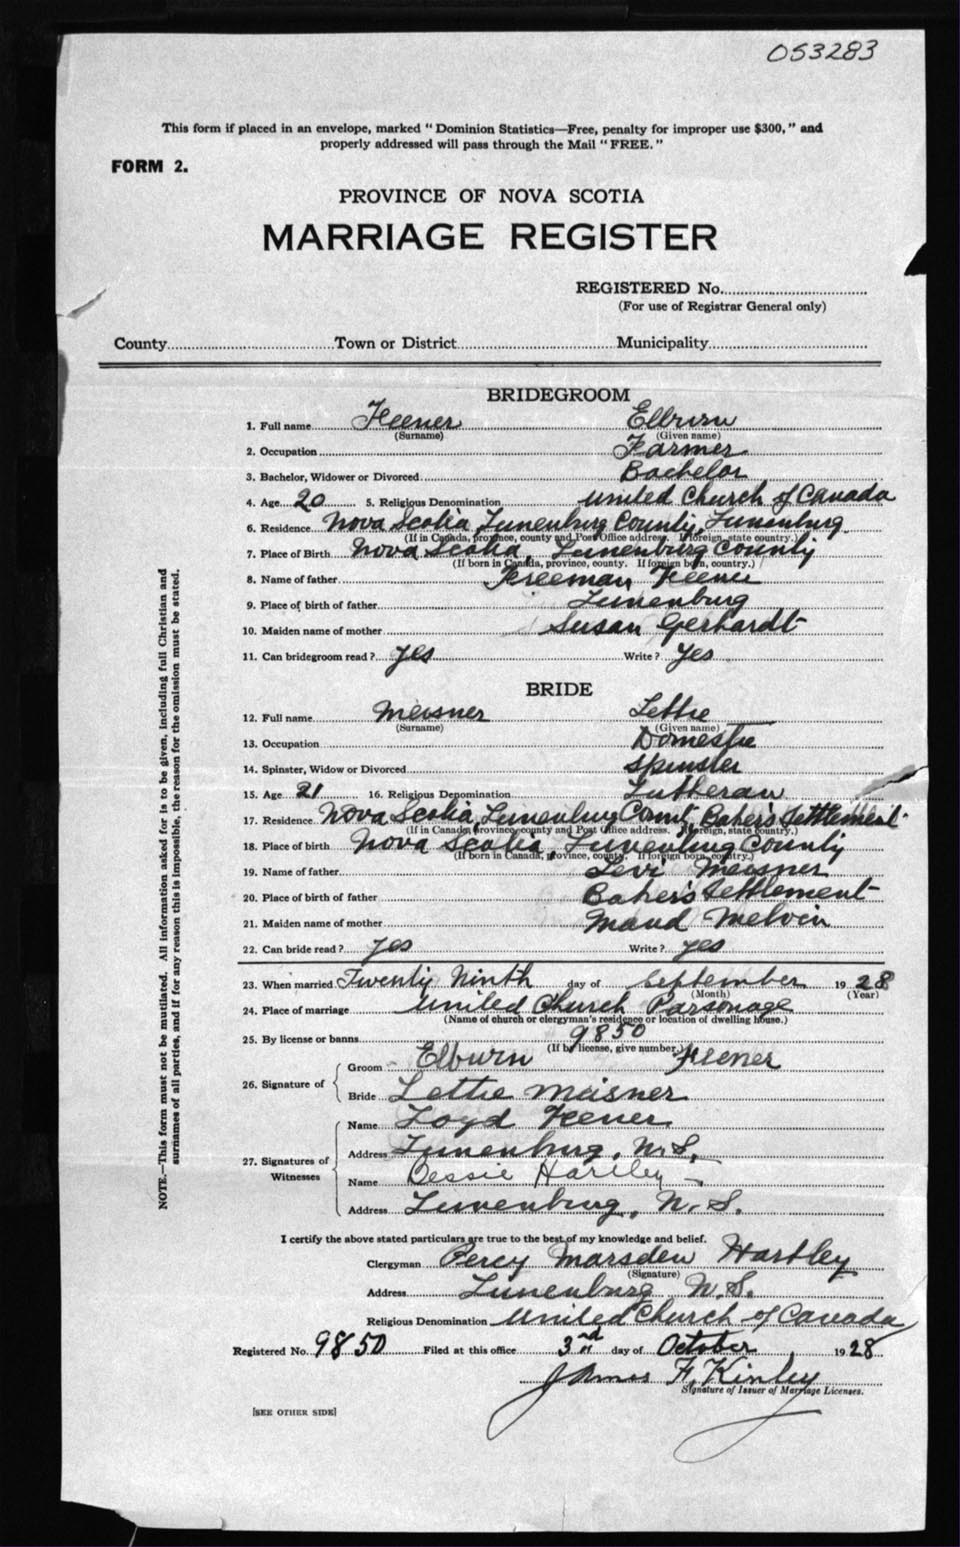 053283
This form if placed in an envelope, marked "Dominion Statistics—Free, penalty for improper use $300," and
properly addressed will pass through the Mail "FREE."
FORM 2.
PROVINCE OF NOVA SCOTIA
MARRIAGE REGISTER
REGISTERED No.
(For use of Registrar General only)
County Town or District Municipality
BRIDEGROOM
1. Full name Feener Elburn
(Surname) (Given name)
2. Occupation Farmer
3. Bachelor, Widower or Divorced Bachelor
4. Age 20 5. Religious Denomination United Church of Canada
6. Residence Nova Scotia, Lunenburg County, Lunenburg
(If in Canada, province, county and Post Office address. If foreign, state country.)
7. Place of Birth Nova Scotia, Lunenburg County
(If born in Canada, province, county. If foreign born, country.)
8. Name of father Freeman Feener
9. Place of birth of father Lunenburg
10. Maiden name of mother Susan Gerhardt
11. Can bridegroom read? yes Write? yes
BRIDE
12. Full name Meisner Lettie
(Surname) (Given name)
13. Occupation Domestic
14. Spinster, Widow or Divorced Spinster
15. Age 21 16. Religious Denomination Lutheran
17. Residence Nova Scotia, Lunenburg Count, Baker's Settlement
(If in Canada, province, county and Post Office address. If foreign, state country.)
18. Place of birth Nova Scotia, Lunenburg County
(If born in Canada, province, county. If foreign born, country.)
19. Name of father Levi Meisner
20. Place of birth of father Baker's Settlement
21. Maiden name of mother Maud Melvin
22. Can bride read? yes Write? yes
23. When married Twenty Ninth day of September 19 28
(Month) (Year)
24. Place of marriage United Church Parsonage
(Name of church or clergyman's residence or location of dwelling house.)
25. By license or banns 9850
(If by license, give number.)
26. Signature of Groom Elburn Feener
Bride Lettie Meisner
27. Signatures of Witnesses Name Loyd Feener
Address Lunenburg, N.S.
Name Bessie Hartley
Address Lunenburg, N.S.
I certify the above stated particulars are true to the best of my knowledge and belief.
Clergyman Percy Marsden Hartley
(Signature)
Address Lunenburg N.S.
Religious Denomination United Church of Canada
Registered No. 9850 Filed at this office 3rd day of October 19 28
James F. Kinley
Signature of Issuer of Marriage Licenses.
[SEE OTHER SIDE]
NOTE.—This form must not be mutilated. All information asked for is to be given, including full Christian and
surnames of all parties, and if for any reason this is impossible, the reason for the omission must be stated.